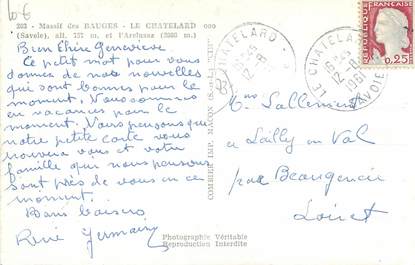 10€
203 - Massif des BAUGES - LE CHATELARD
(Savoie), alt. 757 m. et l'Arclusaz (2000 m.)
Bien Chère Geneviève
Ce petit mot pour vous
donner de nos nouvelles
qui sont bonnes pour le
moment. Nous sommes
en vacances pour le
moment. Nous pensons que
notre petite carte vous
trouvera vous et votre
famille que nous pensons
sont près de vous en ce
moment.
Bons baisers
René Germaine
COMBIER IMP. MACON
Photographie Véritable
Reproduction Interdite
LE CHATELARD
16H45
12-8
1961
SAVOIE
REPUBLIQUE FRANCAISE
0,25
à Lailly en Val
par Beaugency
Loiret